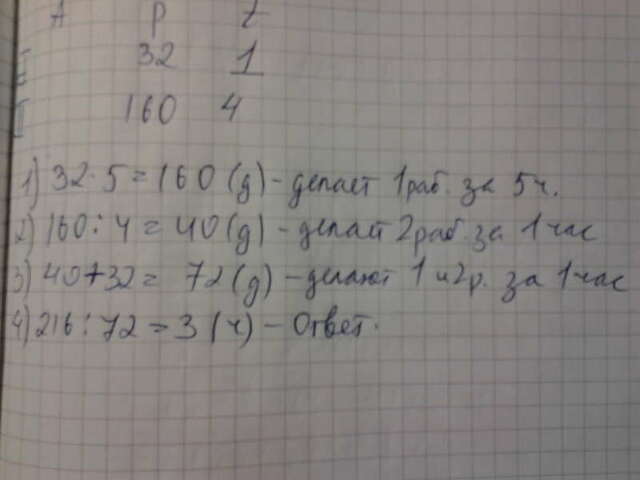 A P t
I 32 1
II 160 4
1) 32·5=160(д)-делает 1раб. за 5ч.
2) 160:4=40(д)-делает 2раб за 1час
3) 40+32= 72(д)-делают 1и2р. за 1час
4) 216:72=3(ч)-Ответ.